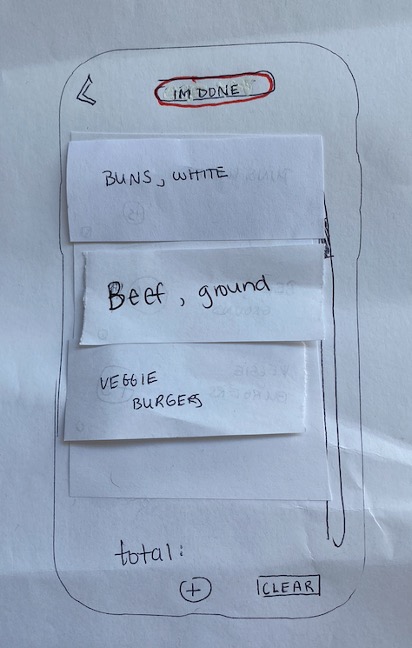 IM DONE
BUNS, WHITE
Beef, ground
VEGGIE
BURGERS
total:
+
CLEAR